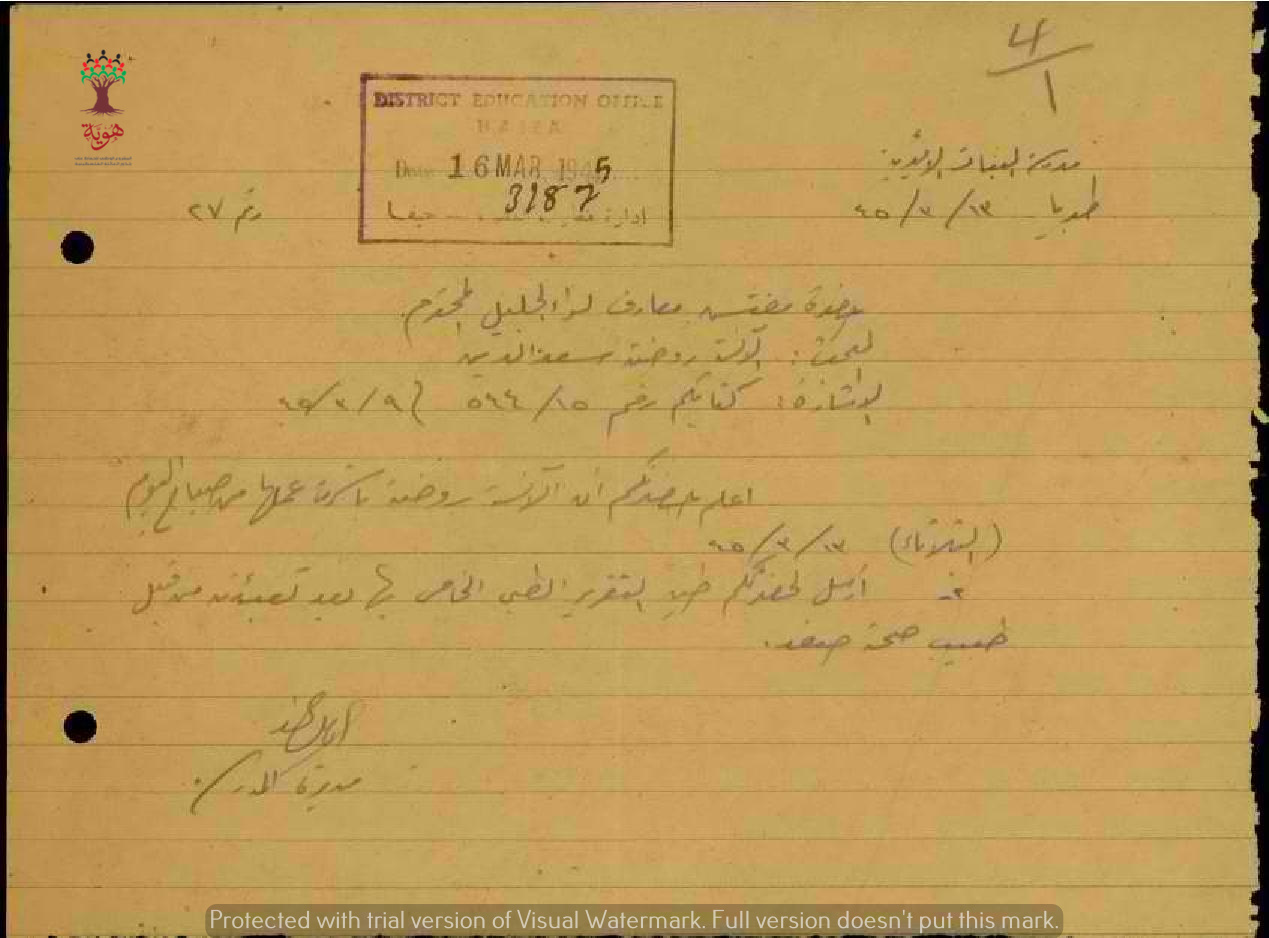 4/1
هوية
DISTRICT EDUCATION OFFICE
HAIFA
Date 16 MAR 1945
3187
ادارة معارف - حيفا
مدرسة البنات الاميرية
طبريا - ١٣/٣/٤٥
رقم ٢٧
حضرة مفتش معارف لواء الجليل المحترم
البحث: الآنسة روضة سعد الدين
الاشارة: كتابكم رقم ٥٤٤/١٥ ٤٥/٣/٩
اعلم حضرتكم ان الآنسة روضة باشرت عملها من صباح اليوم
(الثلاثاء) ٤٥/٣/١٣
٢- ارسل لحضرتكم طيه التقرير الطبي الخاص بها بعد تعبئته من قبل
طبيب صحة صفد.
مديرة المدرسة
Protected with trial version of Visual Watermark. Full version doesn't put this mark.